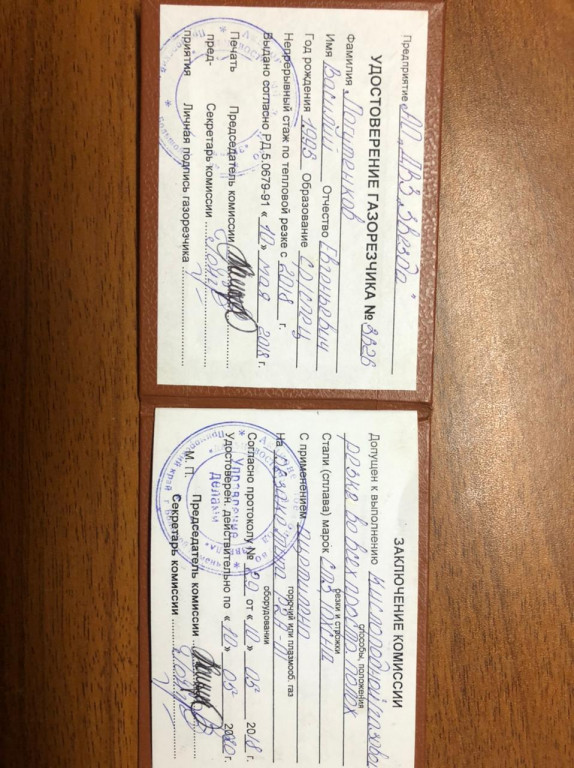 Предприятие АО „ДВЗ „Звезда"
УДОСТОВЕРЕНИЕ ГАЗОРЕЗЧИКА № 3326
Фамилия
Имя Василий Отчество Евгеньевич
Год рождения 1998 Образование ср. спец
Непрерывный стаж по тепловой резке с 2018 г.
Выдано согласно РД 5.0679-91 « 10 » мая 2018 г.
Печать Председатель комиссии
пред- Секретарь комиссии
приятия Личная подпись газорезчика
ЗАКЛЮЧЕНИЕ КОМИССИИ
Допущен к выполнению кислородной газовой
способы, положения
резке во всех полож
резки и строжки
Стали (сплава) марок
С применением ацетилена
горючий или плазмооб. газ
На
оборудовании
Согласно протоколу № от « 10 » 05 2018 г.
Удостоверен. действительно по « 10 » 05 2020 г.
М. П. Председатель комиссии
Секретарь комиссии
Управление делами